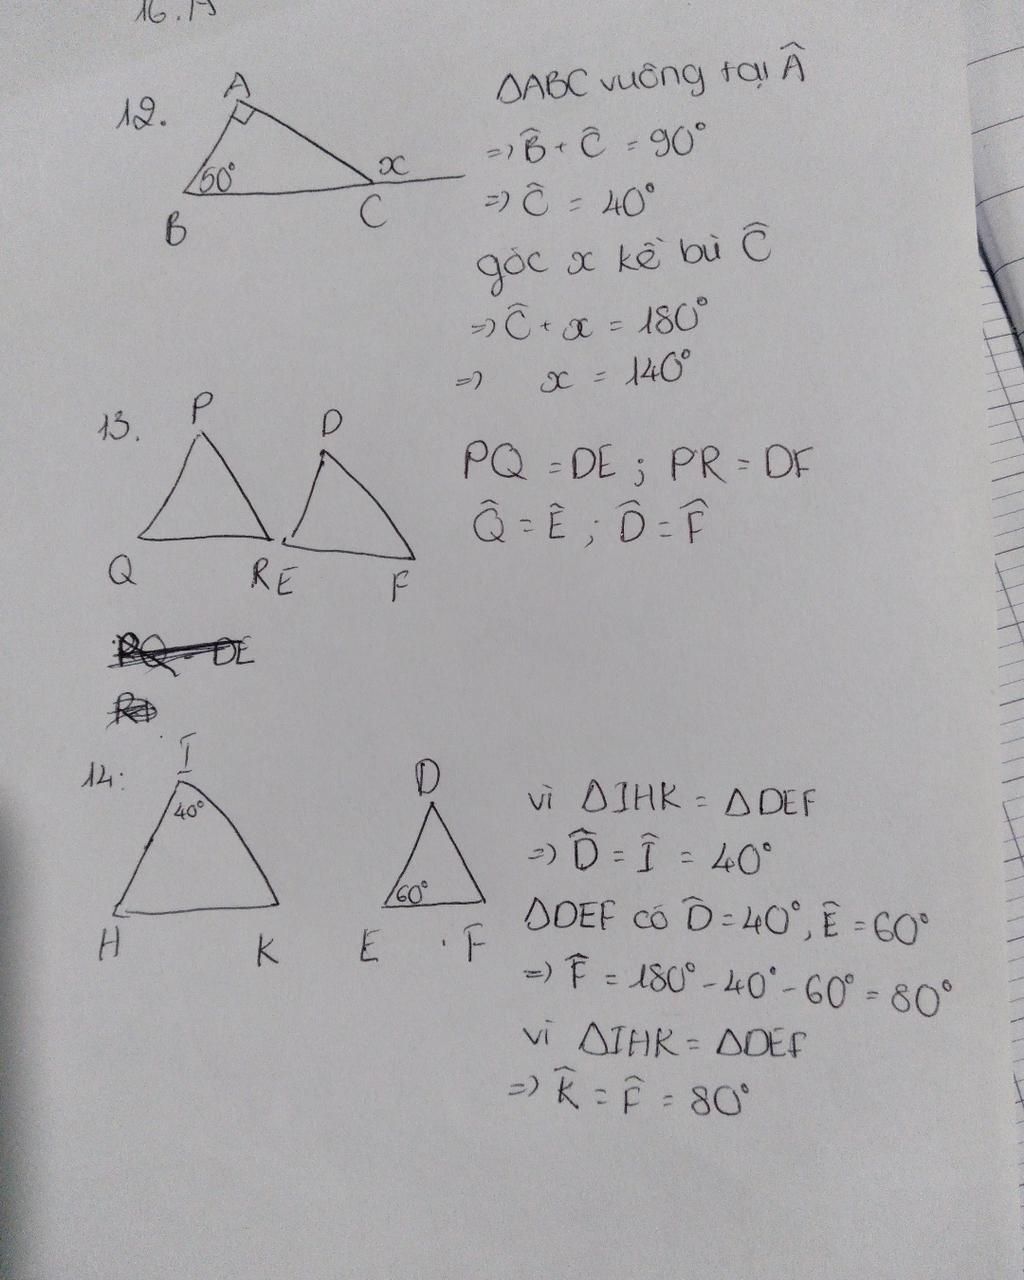 16. A
12.
A
50°
x
B
C
ΔABC vuông tại Â
=> B̂ + Ĉ = 90°
=> Ĉ = 40°
góc x kề bù Ĉ
=> Ĉ + x = 180°
=> x = 140°
13.
P
D
Q
R
E
F
PQ = DE ; PR = DF
Q̂ = Ê ; D̂ = F̂
DE
14:
I
40°
H
K
D
60°
E
F
vì ΔIHK = ΔDEF
=> D̂ = Î = 40°
ΔDEF có D̂ = 40°, Ê = 60°
=> F̂ = 180° - 40° - 60° = 80°
vì ΔIHK = ΔDEF
=> K̂ = F̂ = 80°